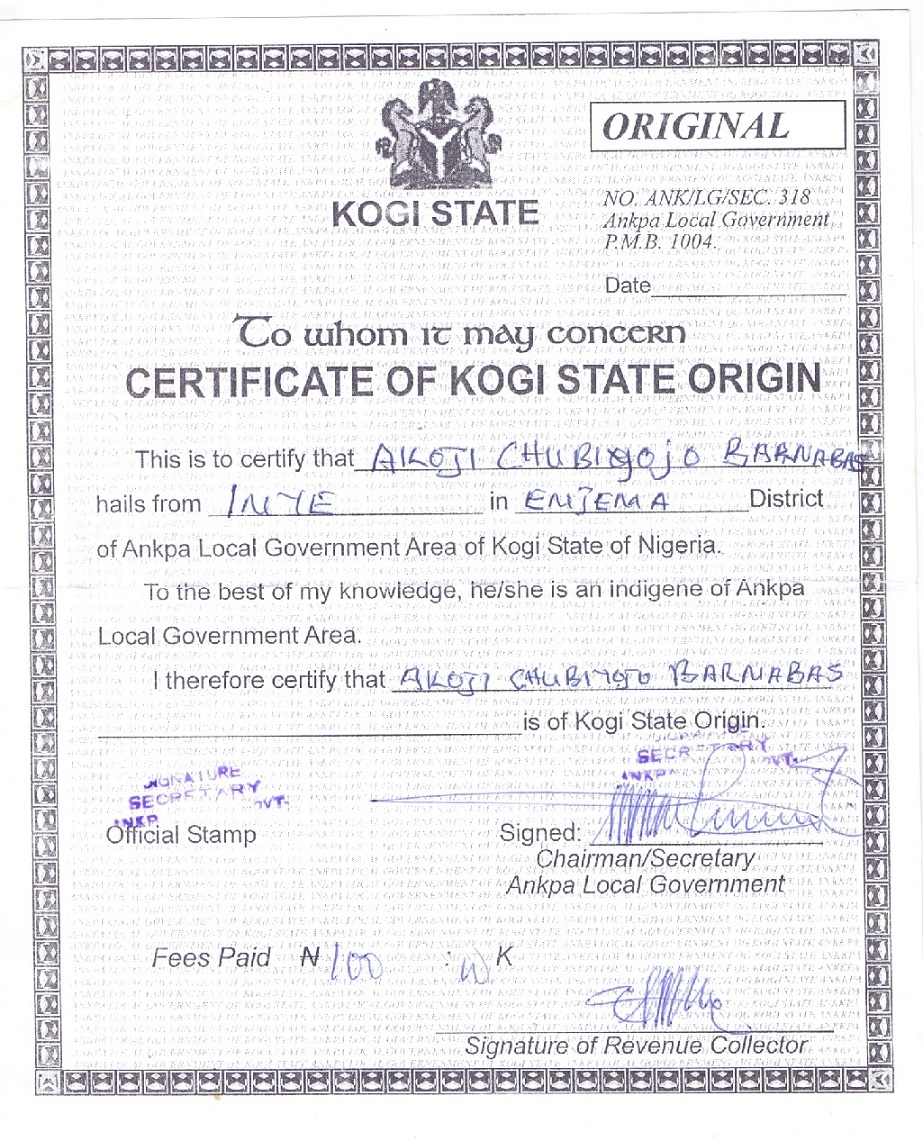 ORIGINAL
KOGI STATE
NO. ANK/LG/SEC. 318
Ankpa Local Government
P.M.B. 1004.
Date
To whom it may concern
CERTIFICATE OF KOGI STATE ORIGIN
This is to certify that AKOJI CHUBIYOJO BARNABAS
hails from INYE in ENJEMA District
of Ankpa Local Government Area of Kogi State of Nigeria.
To the best of my knowledge, he/she is an indigene of Ankpa
Local Government Area.
I therefore certify that AKOJI CHUBIYOJO BARNABAS
is of Kogi State Origin.
SECRETARY
ANKP
SIGNATURE
SECRETARY
ANKP
Official Stamp
Signed:
Chairman/Secretary
Ankpa Local Government
Fees Paid ₦100 : K
Signature of Revenue Collector